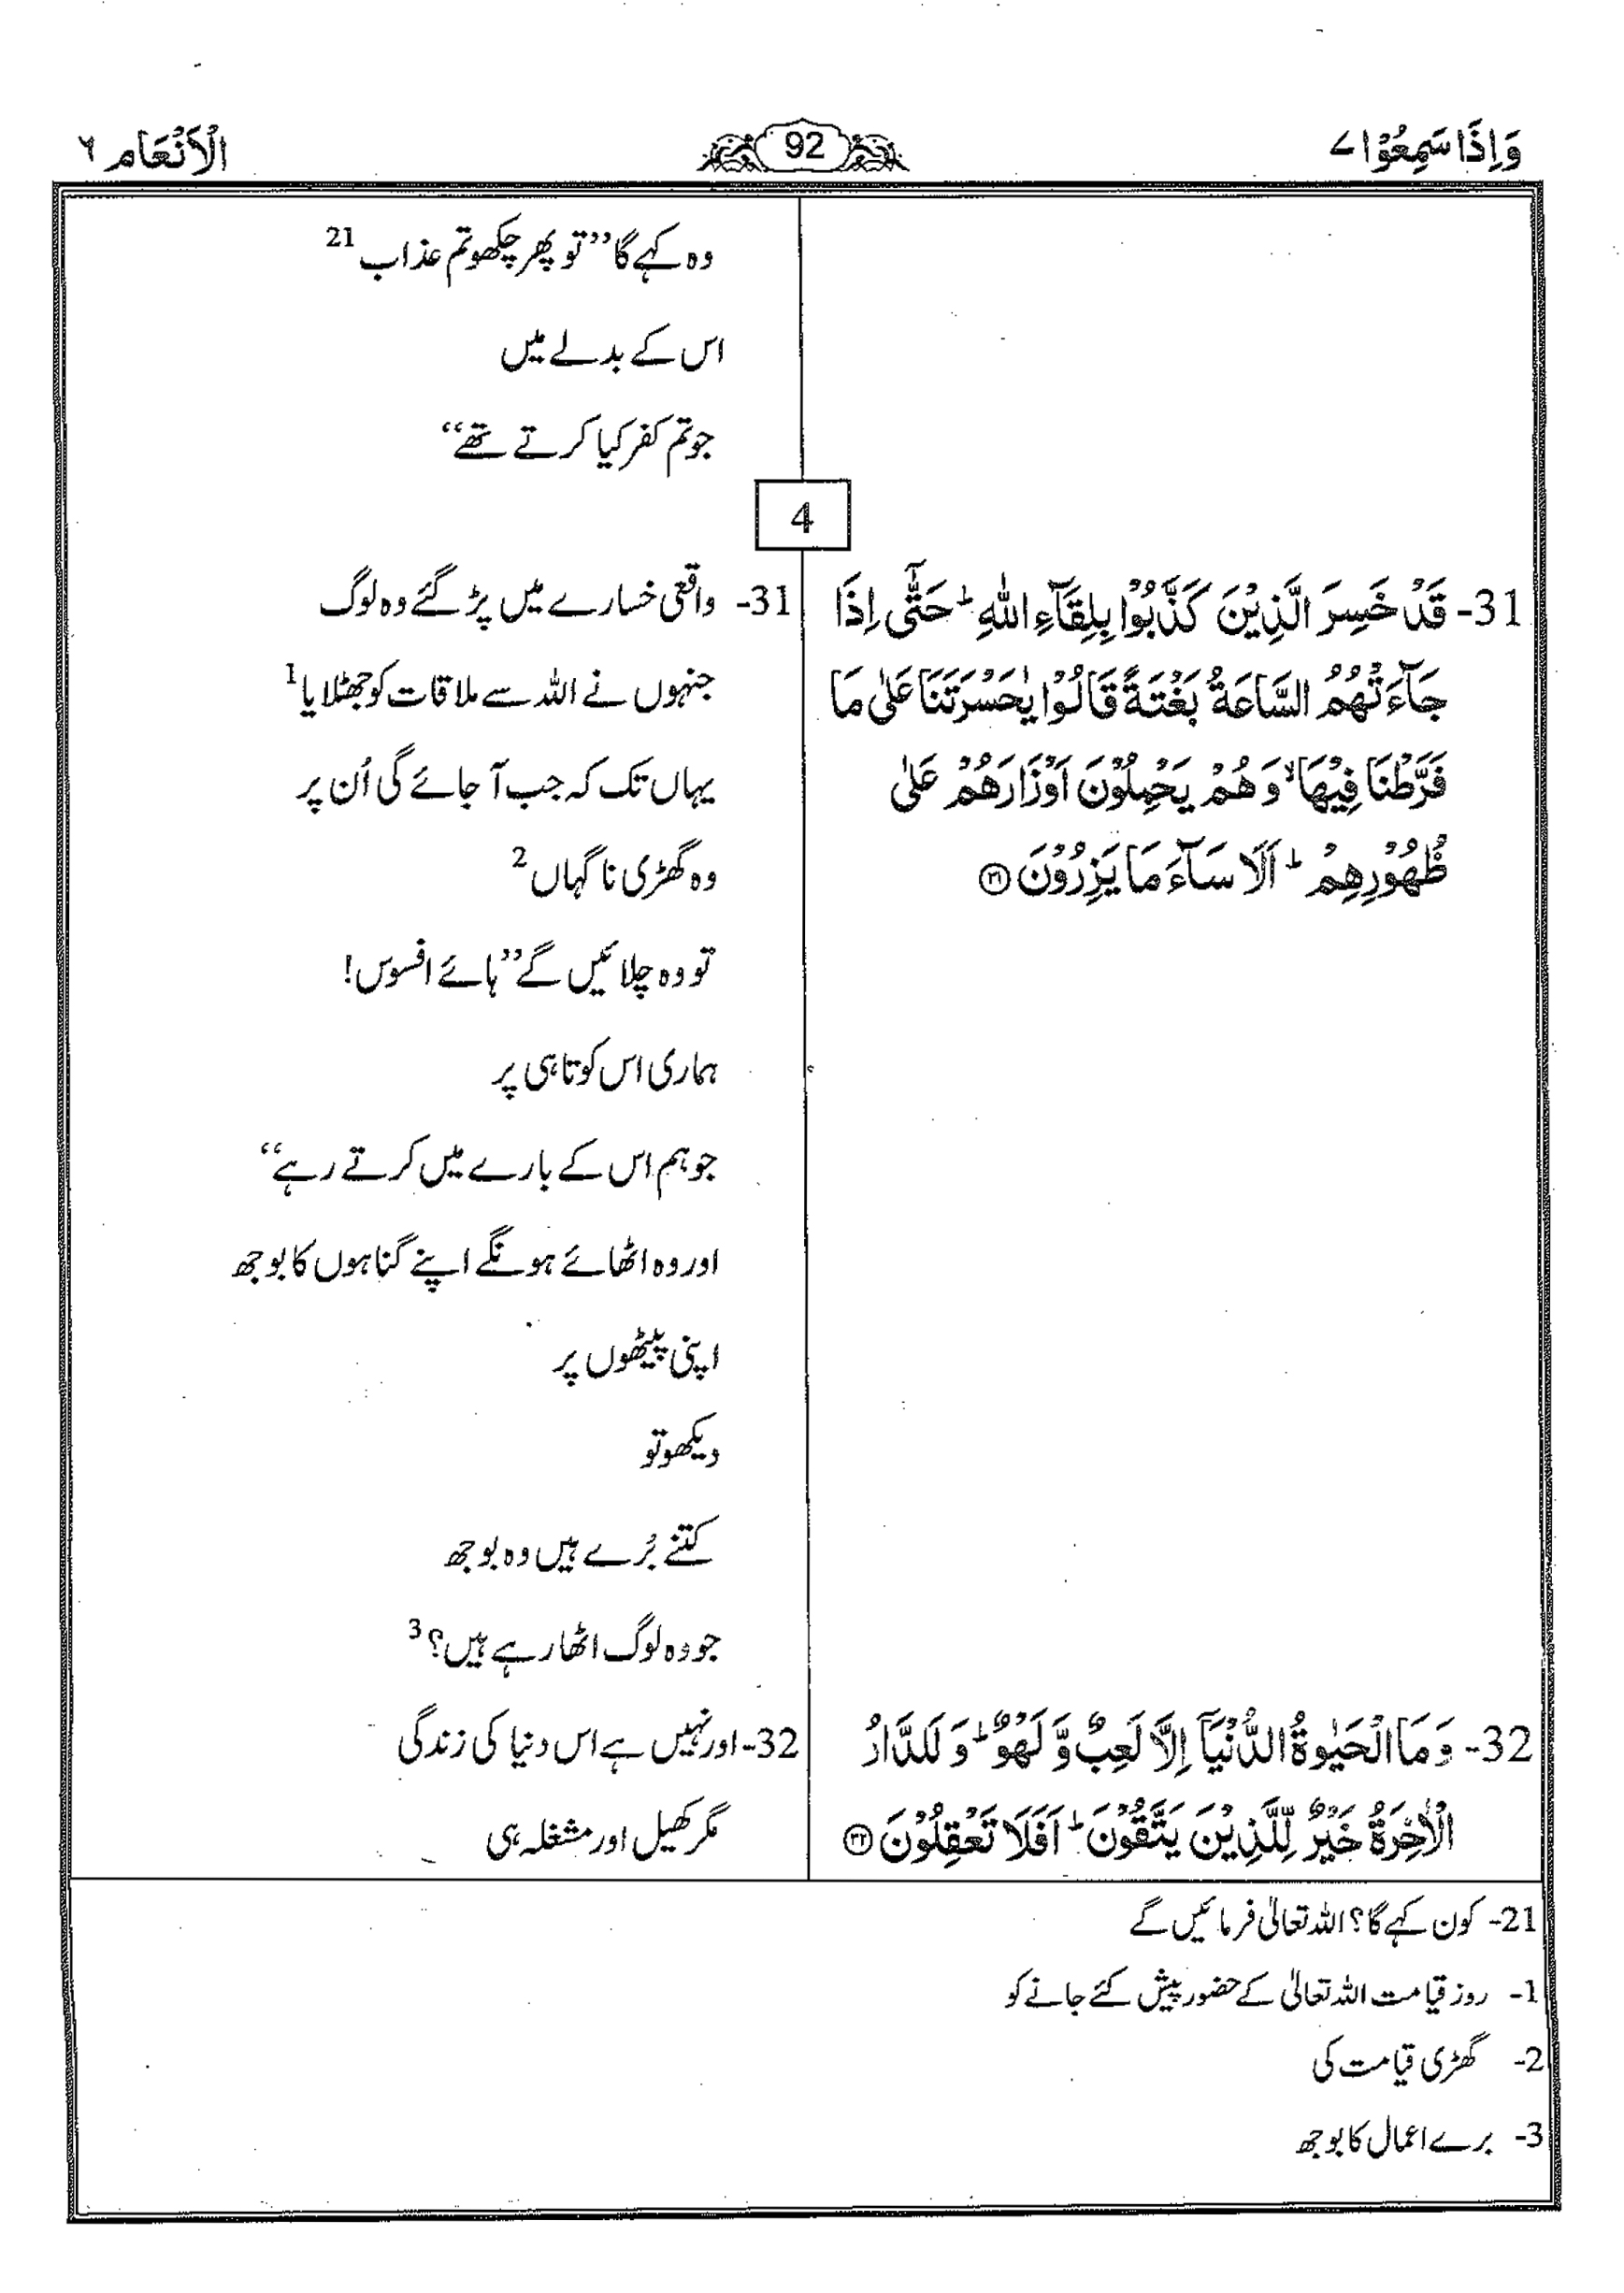 وَاِذَا سَمِعُوْا ۷
92
الْاَنْعَام ۶
وہ کہے گا ’’تو پھر چکھو تم عذاب 21
اس کے بدلے میں
جو تم کفر کیا کرتے تھے‘‘
4
31- قَدْ خَسِرَ الَّذِيْنَ كَذَّبُوْا بِلِقَآءِ اللّٰهِ ؕ حَتّٰۤى اِذَا
جَآءَتْهُمُ السَّاعَةُ بَغْتَةً قَالُوْا يٰحَسْرَتَنَا عَلٰى مَا
فَرَّطْنَا فِيْهَا ۙ وَ هُمْ يَحْمِلُوْنَ اَوْزَارَهُمْ عَلٰى
ظُهُوْرِهِمْ ؕ اَلَا سَآءَ مَا يَزِرُوْنَ ۝۳۱
31- واقعی خسارے میں پڑ گئے وہ لوگ
جنہوں نے اللہ سے ملاقات کو جھٹلایا 1
یہاں تک کہ جب آ جائے گی اُن پر
وہ گھڑی ناگہاں 2
تو وہ چلائیں گے ’’ہائے افسوس!
ہماری اس کوتاہی پر
جو ہم اس کے بارے میں کرتے رہے‘‘
اور وہ اٹھائے ہونگے اپنے گناہوں کا بوجھ
اپنی پیٹھوں پر
دیکھو تو
کتنے بُرے ہیں وہ بوجھ
جو وہ لوگ اٹھا رہے ہیں؟ 3
32- وَ مَا الْحَيٰوةُ الدُّنْيَاۤ اِلَّا لَعِبٌ وَّ لَهْوٌ ؕ وَ لَلدَّارُ
الْاٰخِرَةُ خَيْرٌ لِّلَّذِيْنَ يَتَّقُوْنَ ؕ اَفَلَا تَعْقِلُوْنَ ۝۳۲
32- اور نہیں ہے اس دنیا کی زندگی
مگر کھیل اور مشغلہ ہی
21- کون کہے گا؟ اللہ تعالیٰ فرمائیں گے
1- روز قیامت اللہ تعالیٰ کے حضور پیش کئے جانے کو
2- گھڑی قیامت کی
3- برے اعمال کا بوجھ